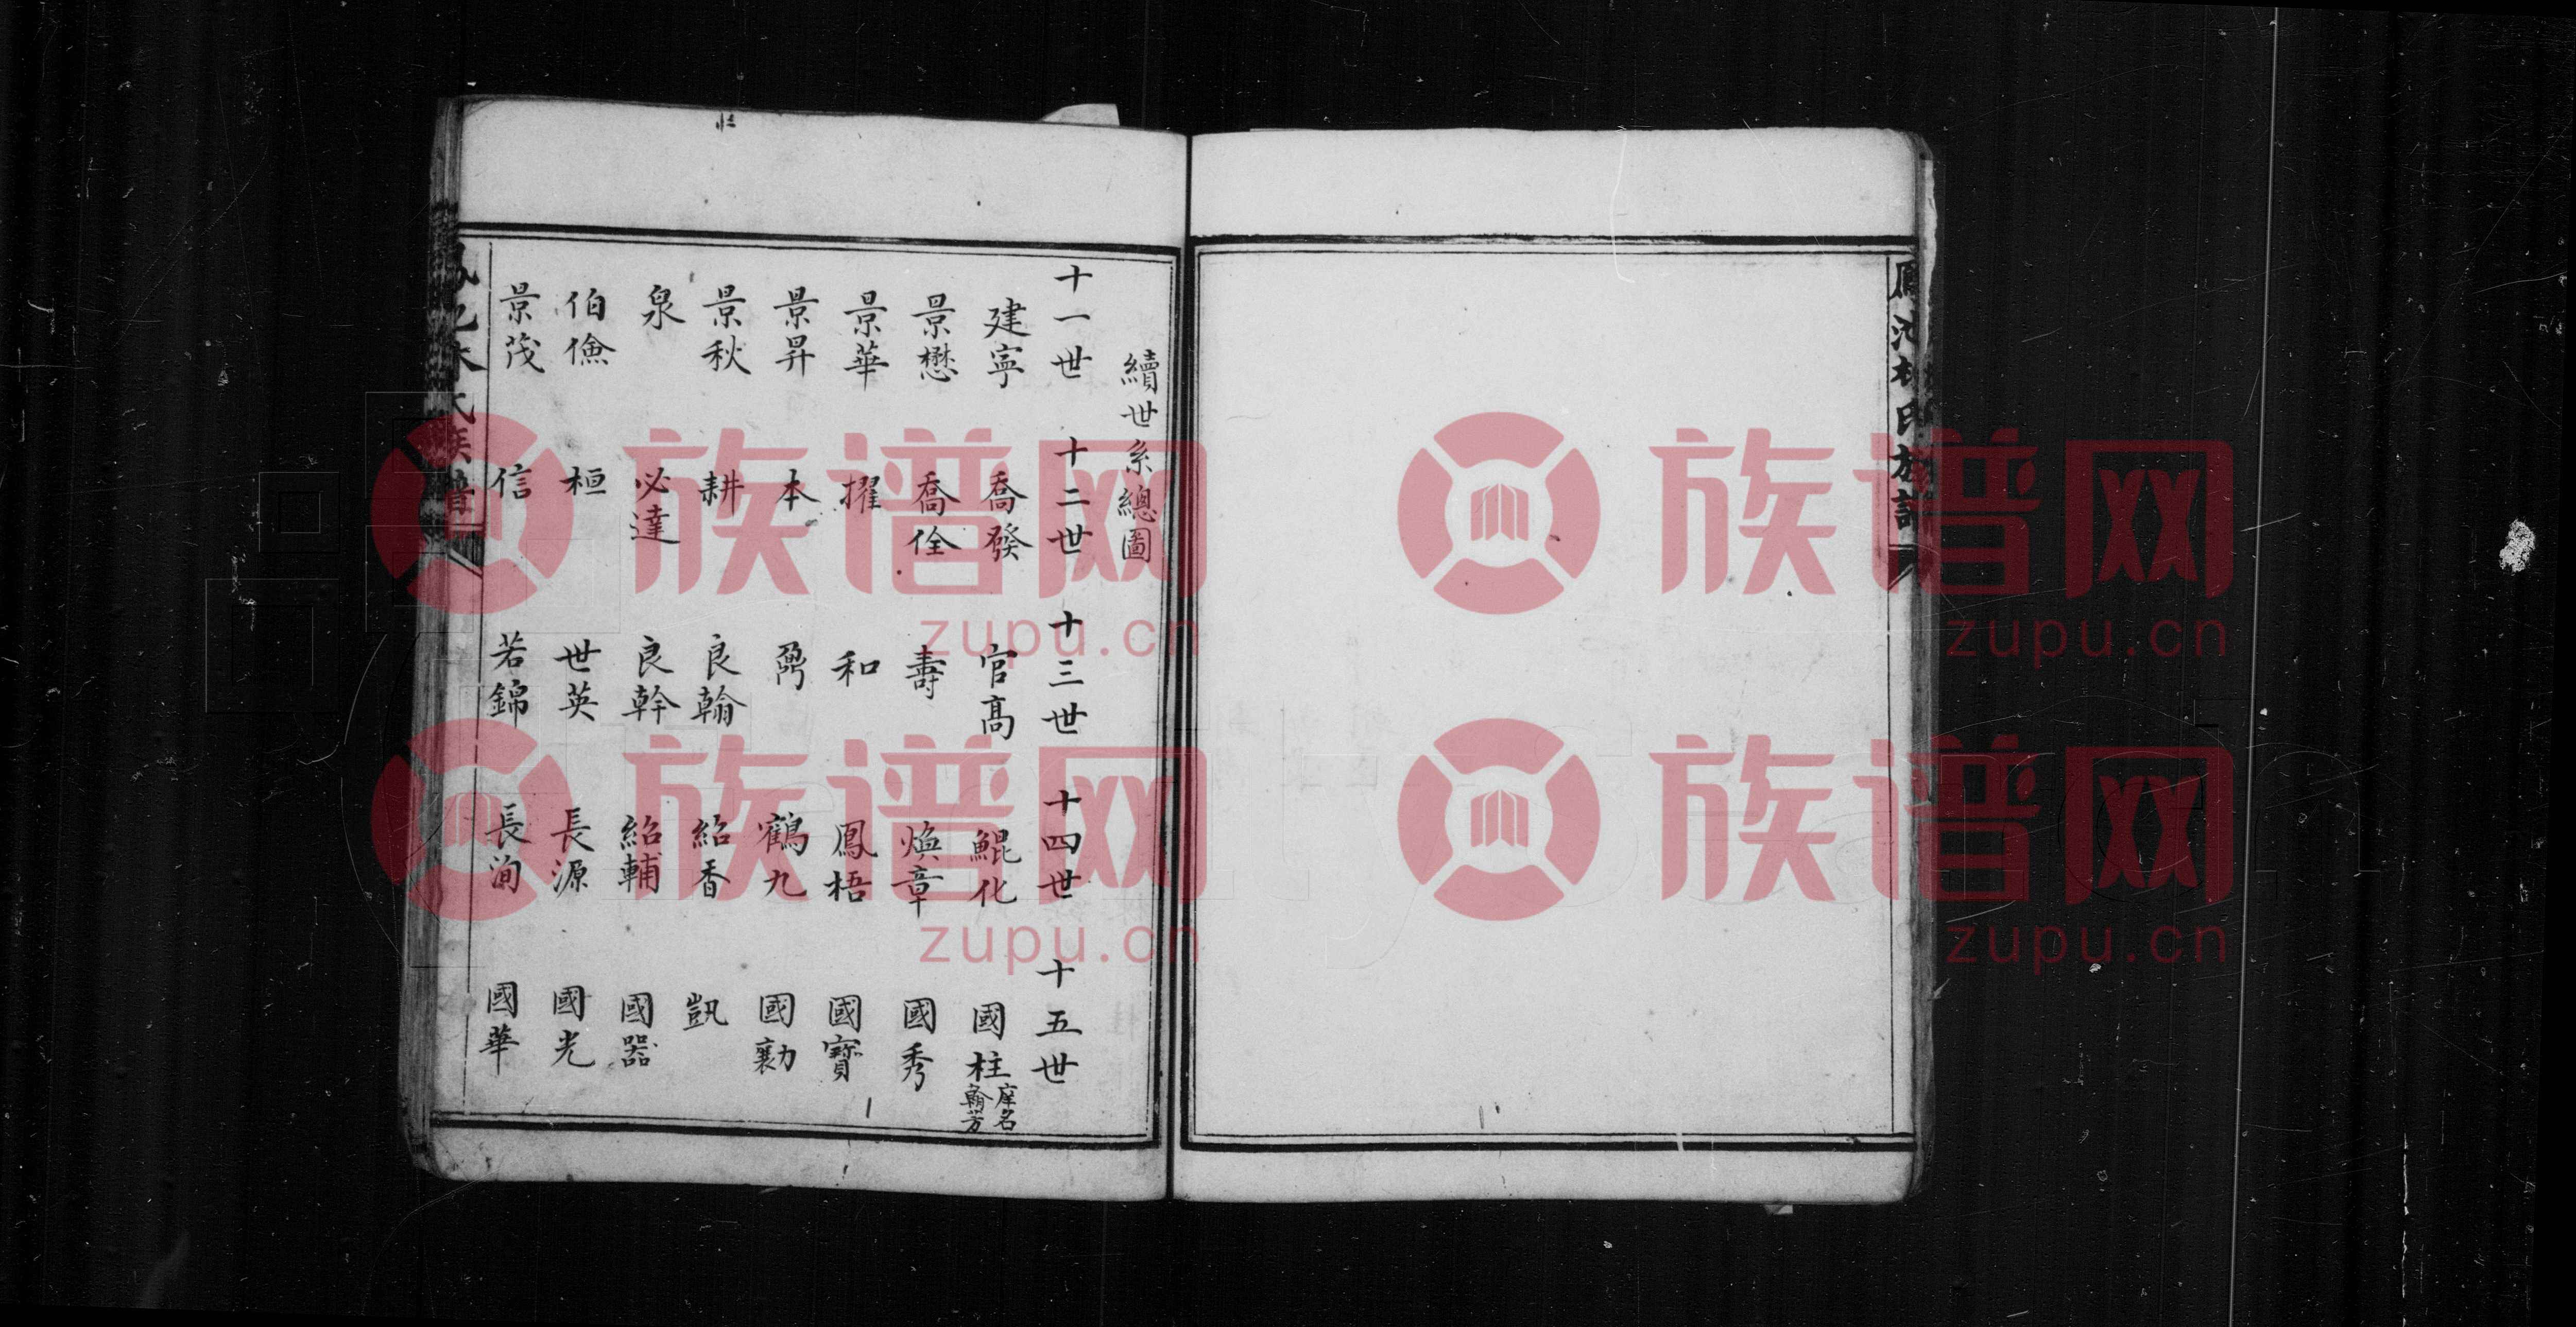 鳳池林氏族譜
續世系總圖
十一世 十二世 十三世 十四世 十五世
建寧 喬發 官高 鯤化 國柱 庠名翰芳
景懋 喬佺 壽 煥章 國秀
景華 擢 和 鳳梧 國寶
景昇 本 鶴九 國勷
景秋 耕 良翰 紹香 凱
泉 必達 良幹 紹輔 國器
伯儉 桓 世英 長源 國光
景茂 信 若錦 長洵 國華
氏族譜
族谱网
zupu.cn
族谱网
zupu.cn
族谱网
zupu.cn
族谱网
zupu.cn